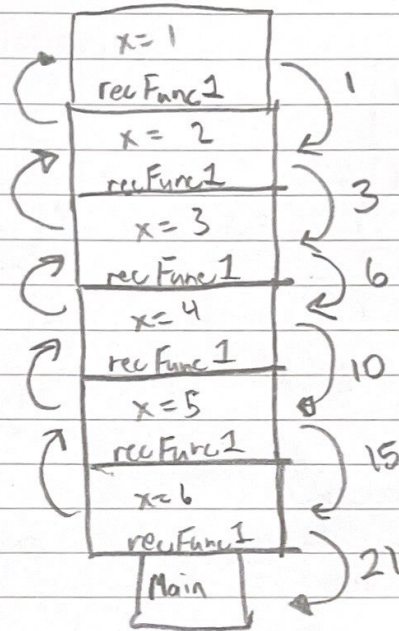 x= 1
recFunc1
1
x= 2
recFunc1
3
x=3
recFunc1
6
x=4
recFunc1
10
x=5
recFunc1
15
x=6
recFunc1
21
Main